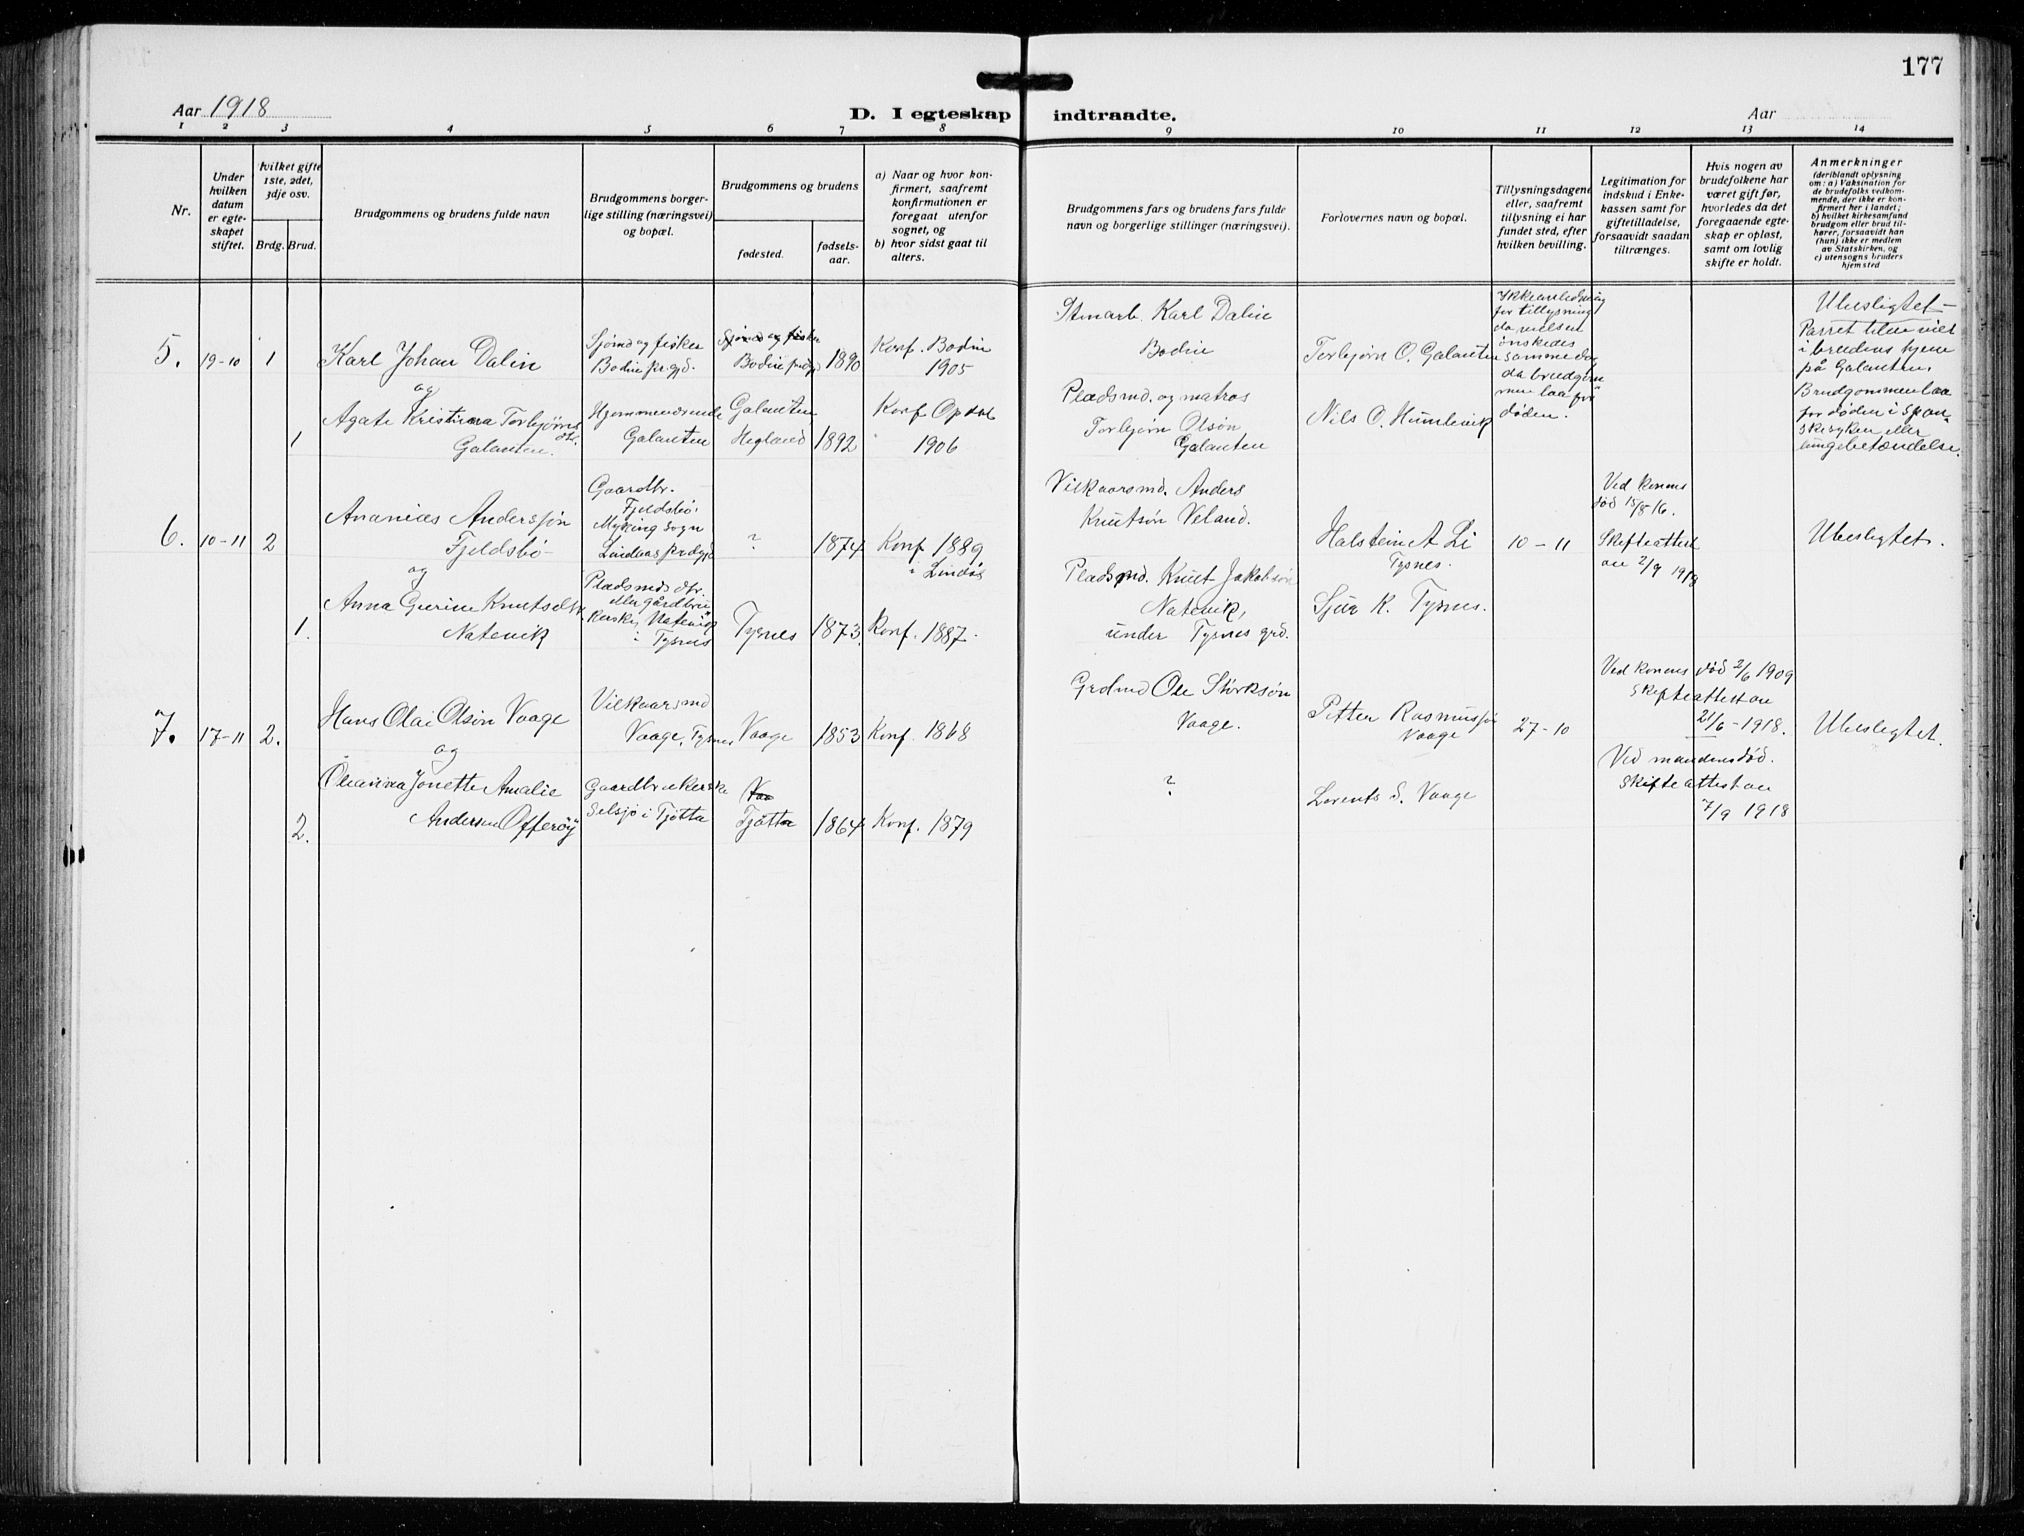 177
Aar 1918
D. I egteskap indtraadte.
Aar
1 2 3 4 5 6 7 8 9 10 11 12 13 14
Nr.
Under
hvilken
datum
er egte-
skapet
stiftet.
hvilket gifte
1ste, 2det,
3dje osv.
Brdg.
Brud.
Brudgommens og brudens fulde navn
Brudgommens borger-
lige stilling (næringsvei)
og bopæl.
Brudgommens og brudens
fødested.
fødsels-
aar.
a) Naar og hvor kon-
firmert, saafremt
konfirmationen er
foregaat utenfor
sognet, og
b) hvor sidst gaat til
alters.
Brudgommens fars og brudens fars fulde
navn og borgerlige stillinger (næringsvei).
Forlovernes navn og bopæl.
Tillysningsdagene
eller, saafremt
tillysning ei har
fundet sted, efter
hvilken bevilling.
Legitimation for
indskud i Enke-
kassen samt for
giftetilladelse,
forsaavidt saadan
tiltrænges.
Hvis nogen av
brudefolkene har
været gift før,
hvorledes da det
foregaaende egte-
skap er opløst,
samt om lovlig
skifte er holdt.
Anmerkninger
(deriblandt oplysning
om: a) Vaksination for
de brudefolks vedkom-
mende, der ikke er kon-
firmert her i landet;
b) hvilket kirkesamfund
brudgom eller brud til-
hører, forsaavidt han
(hun) ikke er medlem
av Statskirken, og
c) utensogns bruders
hjemsted
5.
19-10
1
Karl Johan Dalin
og
Sjømd og fisker
Bodin pr.gjd.
Sjømd og fisker
Bodin prgjd
1890
Konf. Bodin
1905
Karl Dalin
Bodin
Torbjørn O. Galanten
for tillysning
da vielsen
ønskedes
samme dag
da brudgom
men laa for
døden.
Ubesligtet -
Parret blev viet
i brudens hjem
på Galanten.
Brudgommen laa
for døden i Span-
skesyken eller
lungebetændelse.
1
Agate Kristina Torbjørns
dtr.
Galanten.
Hjemmeværende
Galanten
Galanten
Hegland
1892
Konf
1906
Pladsmd. og matros
Torbjørn Olsøn
Galanten
Nils O. Humlevik
6.
10-11
2
Ananias Andersøn
Fjeldsbø
og
Gaardbr.
Fjeldsbø,
Myking sogn
Lindaas prdgjd
?
1874
Konf 1889
i Lindås
Vilkaarsmd. Anders
Knutsøn Veland.
Halstein A Li
Tysnes.
10-11
Ved konens
død 15/8 16.
Skifteattest
av 2/9 1918
Ubesligtet.
1.
Anna Gurine Knutsdtr.
Natevik
Pladsmds dtr.
eller gårdbru
kerske, Natevik
i Tysnes
Tysnes
1873.
Konf. 1887.
Pladsmd. Knut Jakobsøn
Natevik,
under Tysnes grd.
Sjur K. Tysnes.
7.
17-11
2.
Hans Olai Olsøn Vaage
og
Vilkaarsmd
Vaage, Tysnes
Vaage
1853
Konf. 1868
Grdmd Ole Størksøn
Vaage.
Petter Rasmussøn
Vaage
27-10
Ved konens død 2/6 1909
Skifteattest av
21/6 - 1918.
Ubesligtet.
2.
Oleanna Jonette Amalie
Andersen Offerøy
Gaardbrukerske
Selsjø i Tjøtta
Vaa
Tjøtta
1864
Konf. 1879
?
Lorents S. Vaage
Ved mandens død.
Skifteattest av
7/9 1918